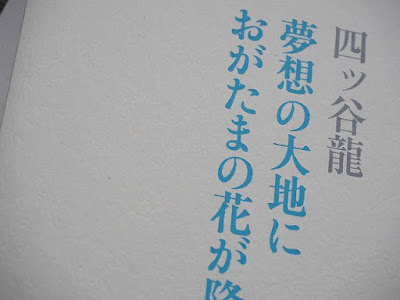 四ッ谷龍
夢想の大地に
おがたまの花が降